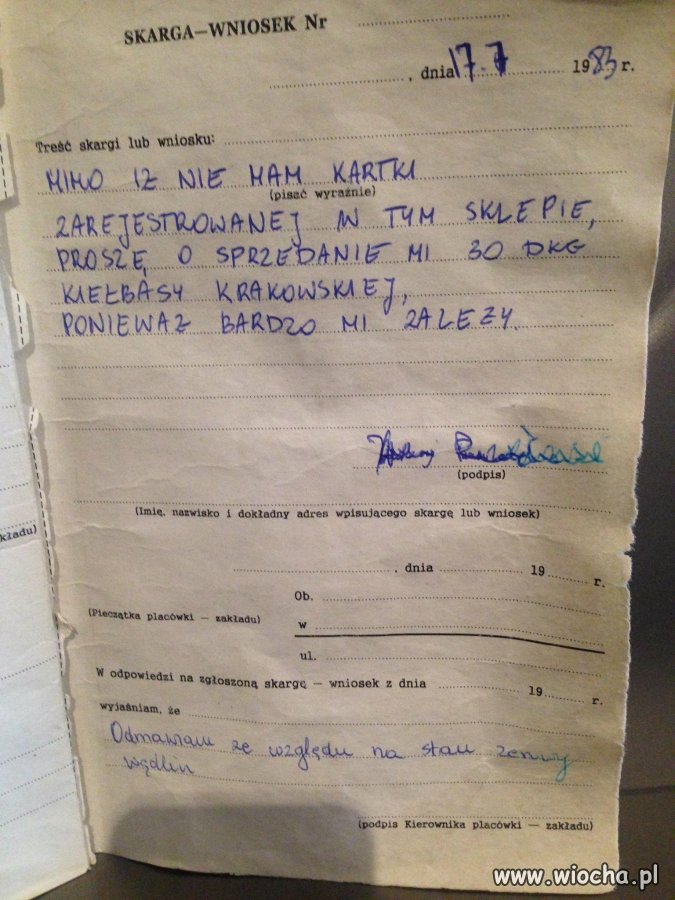 SKARGA—WNIOSEK Nr
, dnia 17.7 1983 r.
Treść skargi lub wniosku:
MIMO IZ NIE MAM KARTKI
(pisać wyraźnie)
ZAREJESTROWANEJ W TYM SKLEPIE,
PROSZĘ O SPRZEDANIE MI 30 DKG
KIEŁBASY KRAKOWSKIEJ,
PONIEWAZ BARDZO MI ZALEZY.
(podpis)
(Imię, nazwisko i dokładny adres wpisującego skargę lub wniosek)
kładu)
, dnia 19 r.
Ob.
(Pieczątka placówki — zakładu)
w
ul.
W odpowiedzi na zgłoszoną skargę — wniosek z dnia 19 r.
wyjaśniam, że
Odmawiam ze względu na stan
wędlin
(podpis Kierownika placówki — zakładu)
www.wiocha.pl